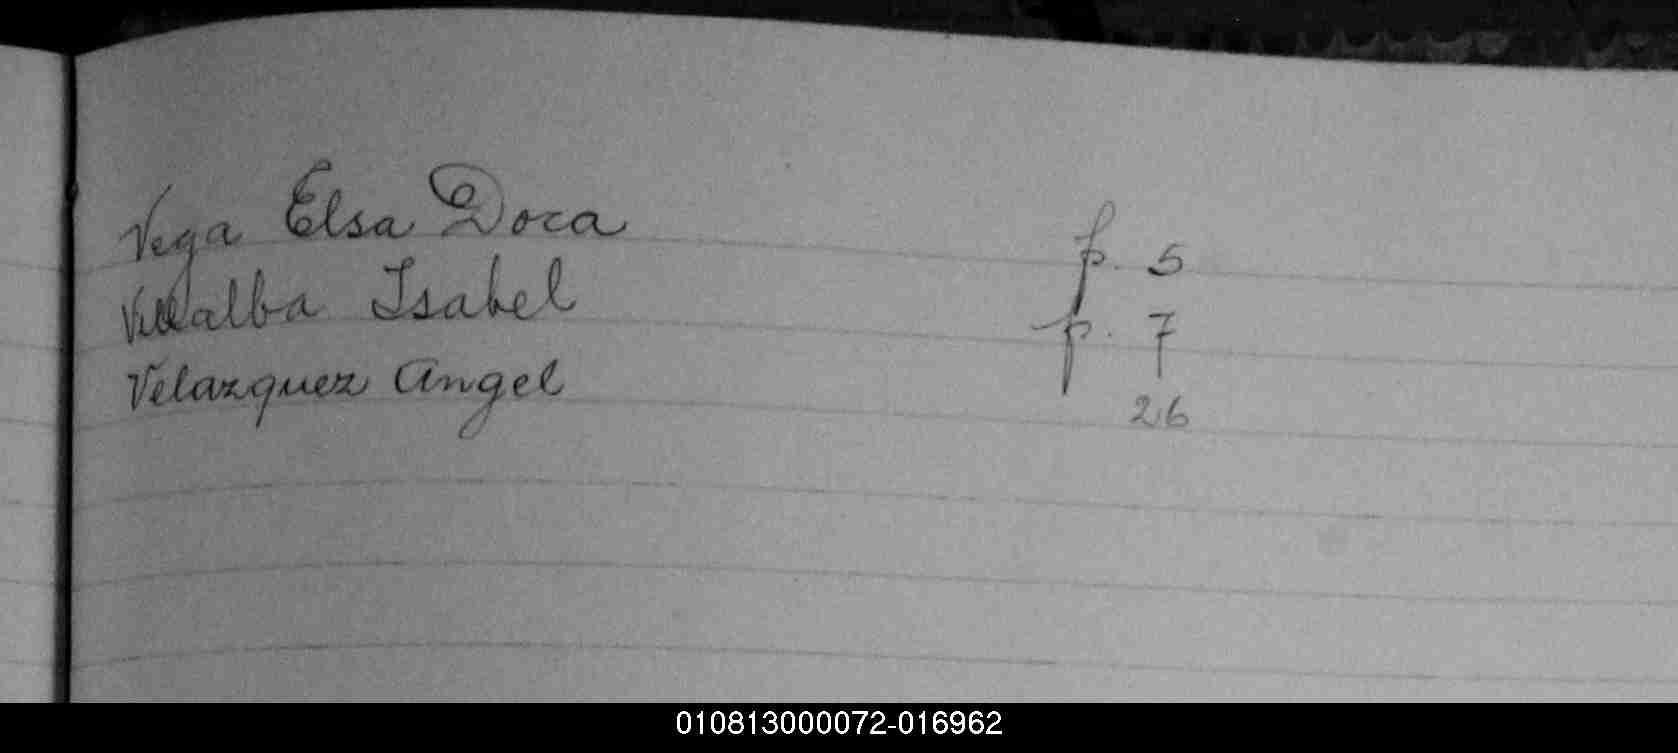 Vega Elsa Dora p. 5
Villalba Isabel p. 7
Velazquez Angel 26
010813000072-016962